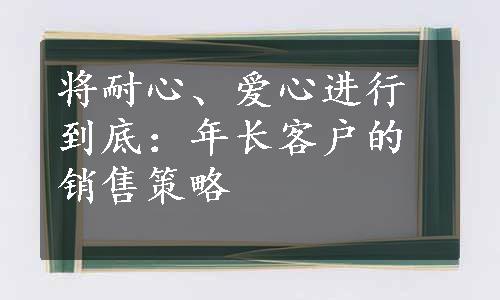 将耐心、爱心进行
到底：年长客户的
销售策略